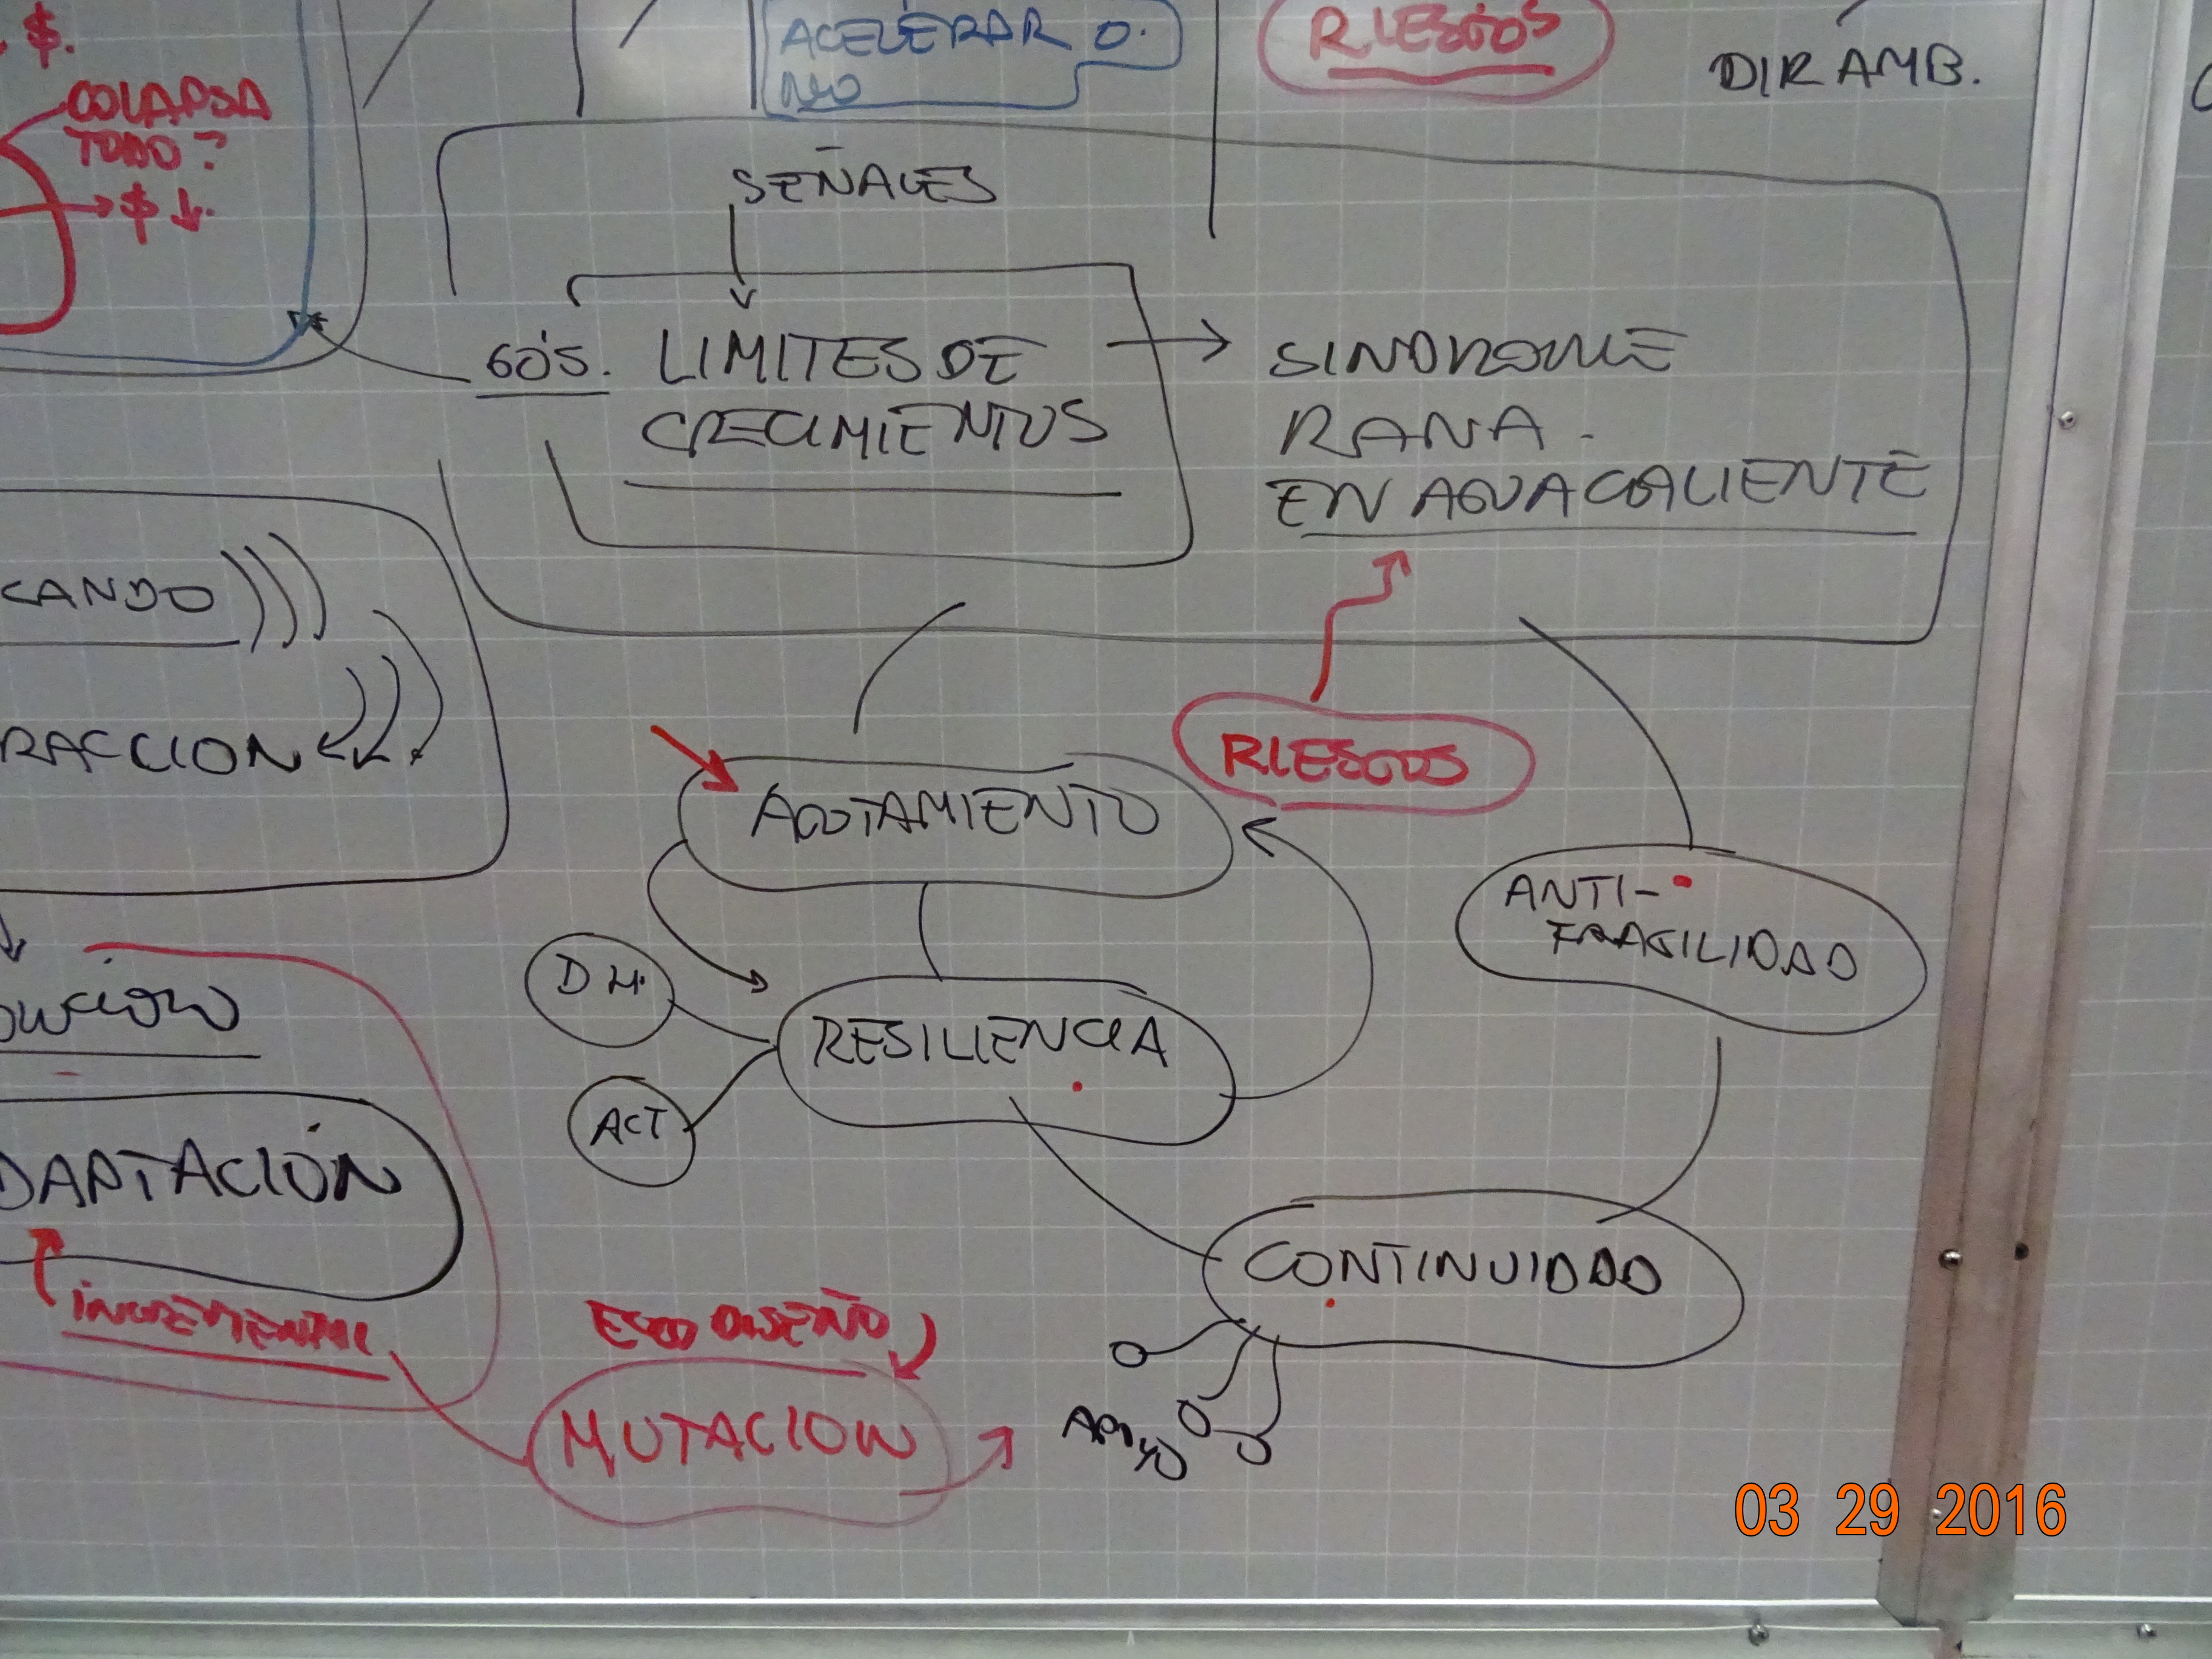 $.
COLAPSA
TODO?
$ ↓.
ACELERAR O.
NO
RIESGOS
DIR AMB.
SEÑALES
60'S. LIMITES DE
CRECIMIENTOS
SINDROME
RANA.
EN AGUA CALIENTE
CANDO
RACCION
RIESGOS
AGOTAMIENTO
ANTI-
FRAGILIDAD
D H.
RESILIENCIA
ACT
DAPTACIÓN
INCREMENTAL
ECO DISEÑO
MUTACION
CONTINUIDAD
APOYO
03 29 2016